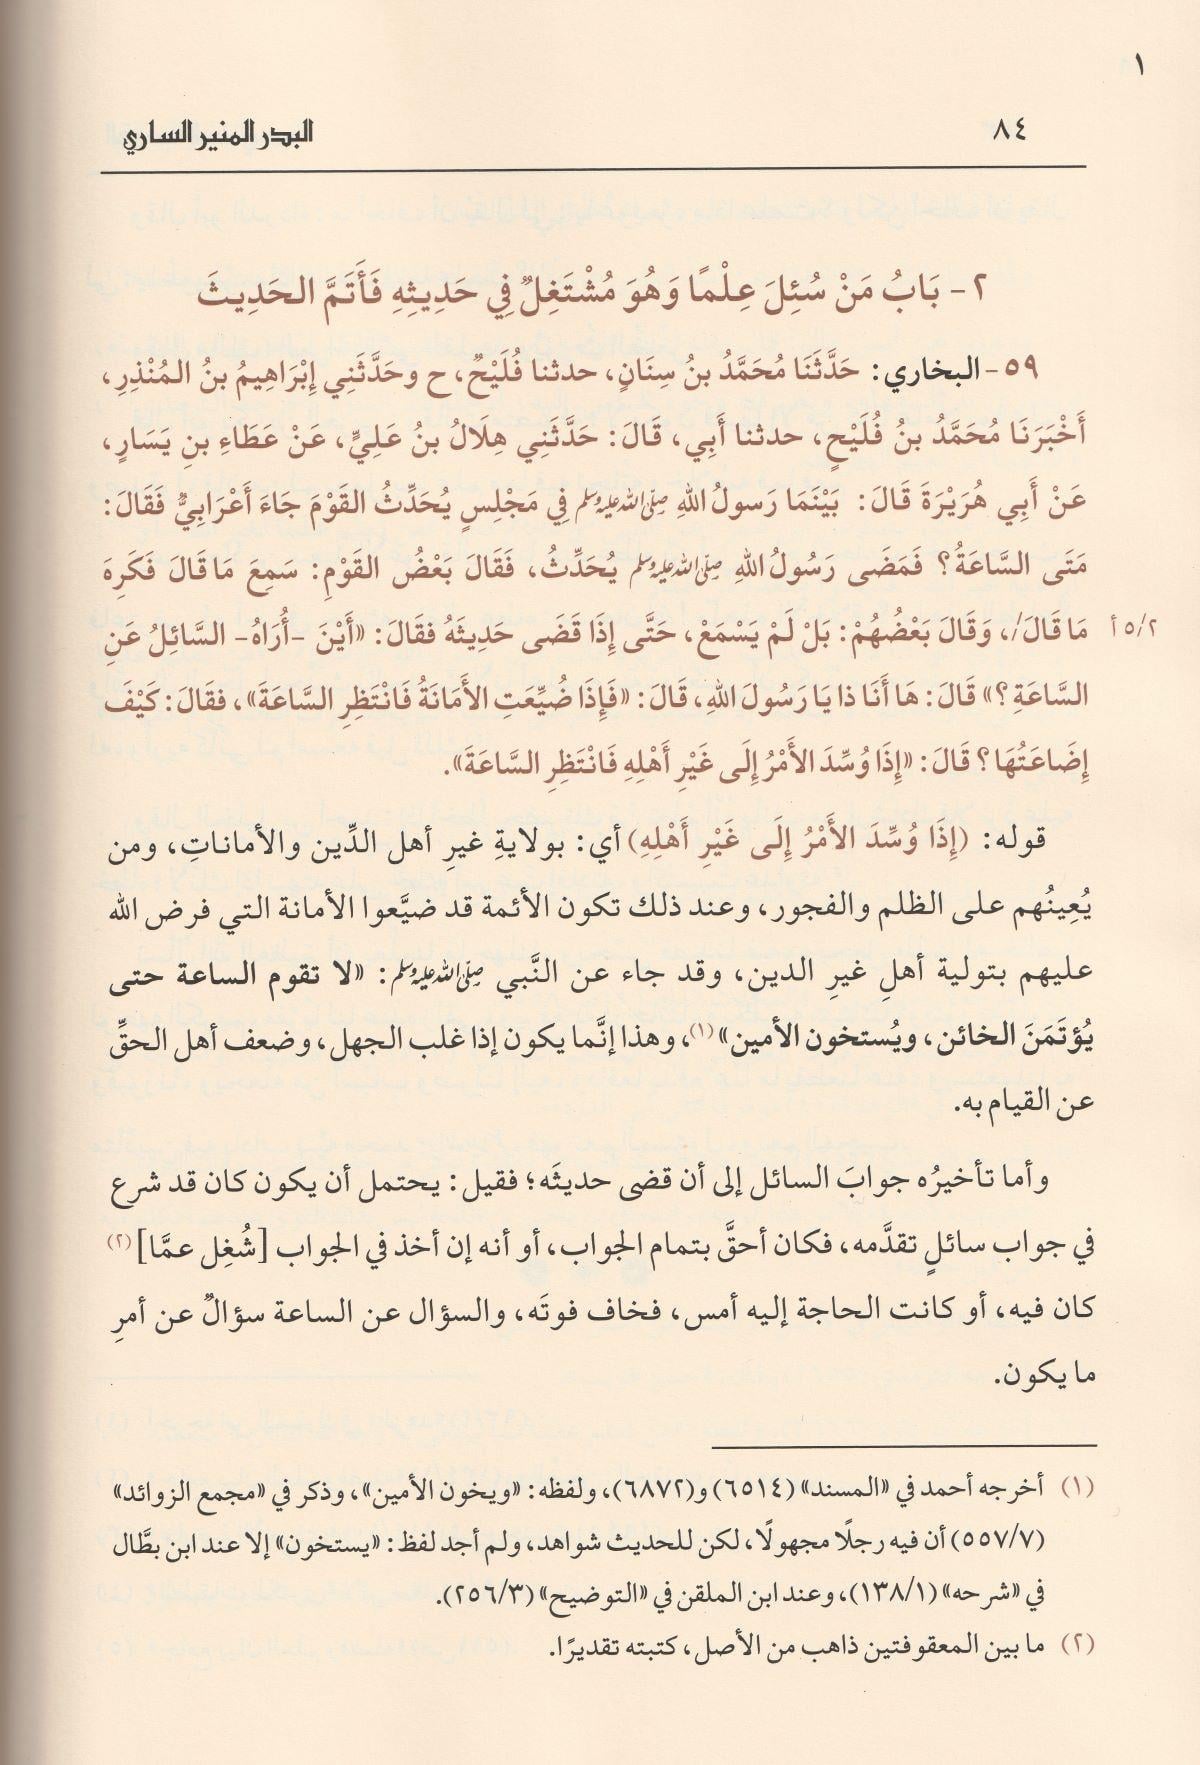 ١
٨٤
البدر المنير الساري
٢- بَابُ مَنْ سُئِلَ عِلْمًا وَهُوَ مُشْتَغِلٌ فِي حَدِيثِهِ فَأَتَمَّ الحَدِيثَ
٥٩- البخاري: حَدَّثَنَا مُحَمَّدُ بنُ سِنَانٍ، حدثنا فُلَيْحٌ، ح وحَدَّثَنِي إِبْرَاهِيمُ بنُ المُنْذِرِ،
أَخْبَرَنَا مُحَمَّدُ بنُ فُلَيْحٍ، حدثنا أَبِي، قَالَ: حَدَّثَنِي هِلَالُ بنُ عَلِيٍّ، عَنْ عَطَاءِ بنِ يَسَارٍ،
عَنْ أَبِي هُرَيْرَةَ قَالَ: بَيْنَمَا رَسولُ اللهِ صلى الله عليه وسلم فِي مَجْلِسٍ يُحَدِّثُ القَوْمَ جَاءَ أَعْرَابِيٌّ فَقَالَ:
مَتَى السَّاعَةُ؟ فَمَضَى رَسُولُ اللهِ صلى الله عليه وسلم يُحَدِّثُ، فَقَالَ بَعْضُ القَوْمِ: سَمِعَ مَا قَالَ فَكَرِهَ
مَا قَالَ/، وَقَالَ بَعْضُهُمْ: بَلْ لَمْ يَسْمَعْ، حَتَّى إِذَا قَضَى حَدِيثَهُ فقَالَ: «أَيْنَ -أُرَاهُ- السَّائِلُ عَنِ
٥/٢ أ
السَّاعَةِ؟» قَالَ: هَا أَنَا ذا يَا رَسُولَ اللهِ، قَالَ: «فَإِذَا ضُيِّعَتِ الأَمَانَةُ فَانْتَظِرِ السَّاعَةَ»، فقَالَ: كَيْفَ
إِضَاعَتُهَا؟ قَالَ: «إِذَا وُسِّدَ الأَمْرُ إِلَى غَيْرِ أَهْلِهِ فَانْتَظِرِ السَّاعَةَ».
قوله: (إِذَا وُسِّدَ الأَمْرُ إِلَى غَيْرِ أَهْلِهِ) أي: بولايةِ غيرِ أهل الدِّين والأماناتِ، ومن
يُعِينُهم على الظلم والفجور، وعند ذلك تكون الأئمة قد ضيَّعوا الأمانة التي فرض الله
عليهم بتولية أهلِ غيرِ الدين، وقد جاء عن النَّبي صلى الله عليه وسلم: «لا تقوم الساعة حتى
يُؤتَمَنَ الخائن، ويُستخون الأمين»(١)، وهذا إنَّما يكون إذا غلب الجهل، وضعف أهل الحقِّ
عن القيام به.
وأما تأخيرُه جوابَ السائل إلى أن قضى حديثَه؛ فقيل: يحتمل أن يكون كان قد شرع
في جواب سائلٍ تقدَّمه، فكان أحقَّ بتمام الجواب، أو أنه إن أخذ في الجواب [شُغِل عمَّا](٢)
كان فيه، أو كانت الحاجة إليه أمس، فخاف فوتَه، والسؤال عن الساعة سؤالٌ عن أمرِ
ما يكون.
(١) أخرجه أحمد في «المسند» (٦٥١٤) و(٦٨٧٢)، ولفظه: «ويخون الأمين»، وذكر في «مجمع الزوائد»
(٥٥٧/٧) أن فيه رجلًا مجهولًا، لكن للحديث شواهد، ولم أجد لفظ: «يستخون» إلا عند ابن بطَّال
في «شرحه» (١٣٨/١)، وعند ابن الملقن في «التوضيح» (٢٥٦/٣).
(٢) ما بين المعقوفتين ذاهب من الأصل، كتبته تقديرًا.